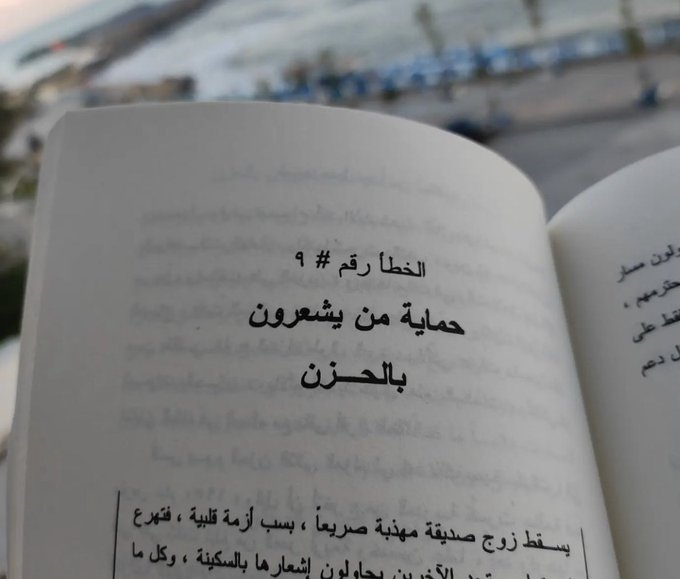 الخطأ رقم # ٩
حماية من يشعرون
بالحـــزن
يســقط زوج صديقة مهذبة صريعاً ، بسب أزمة قلبية ، فتهرع
الآخرين يحاولون إشعارها بالسكينة ، وكل ما
ولون مسار
حترمهم ،
قط على
ل دعم